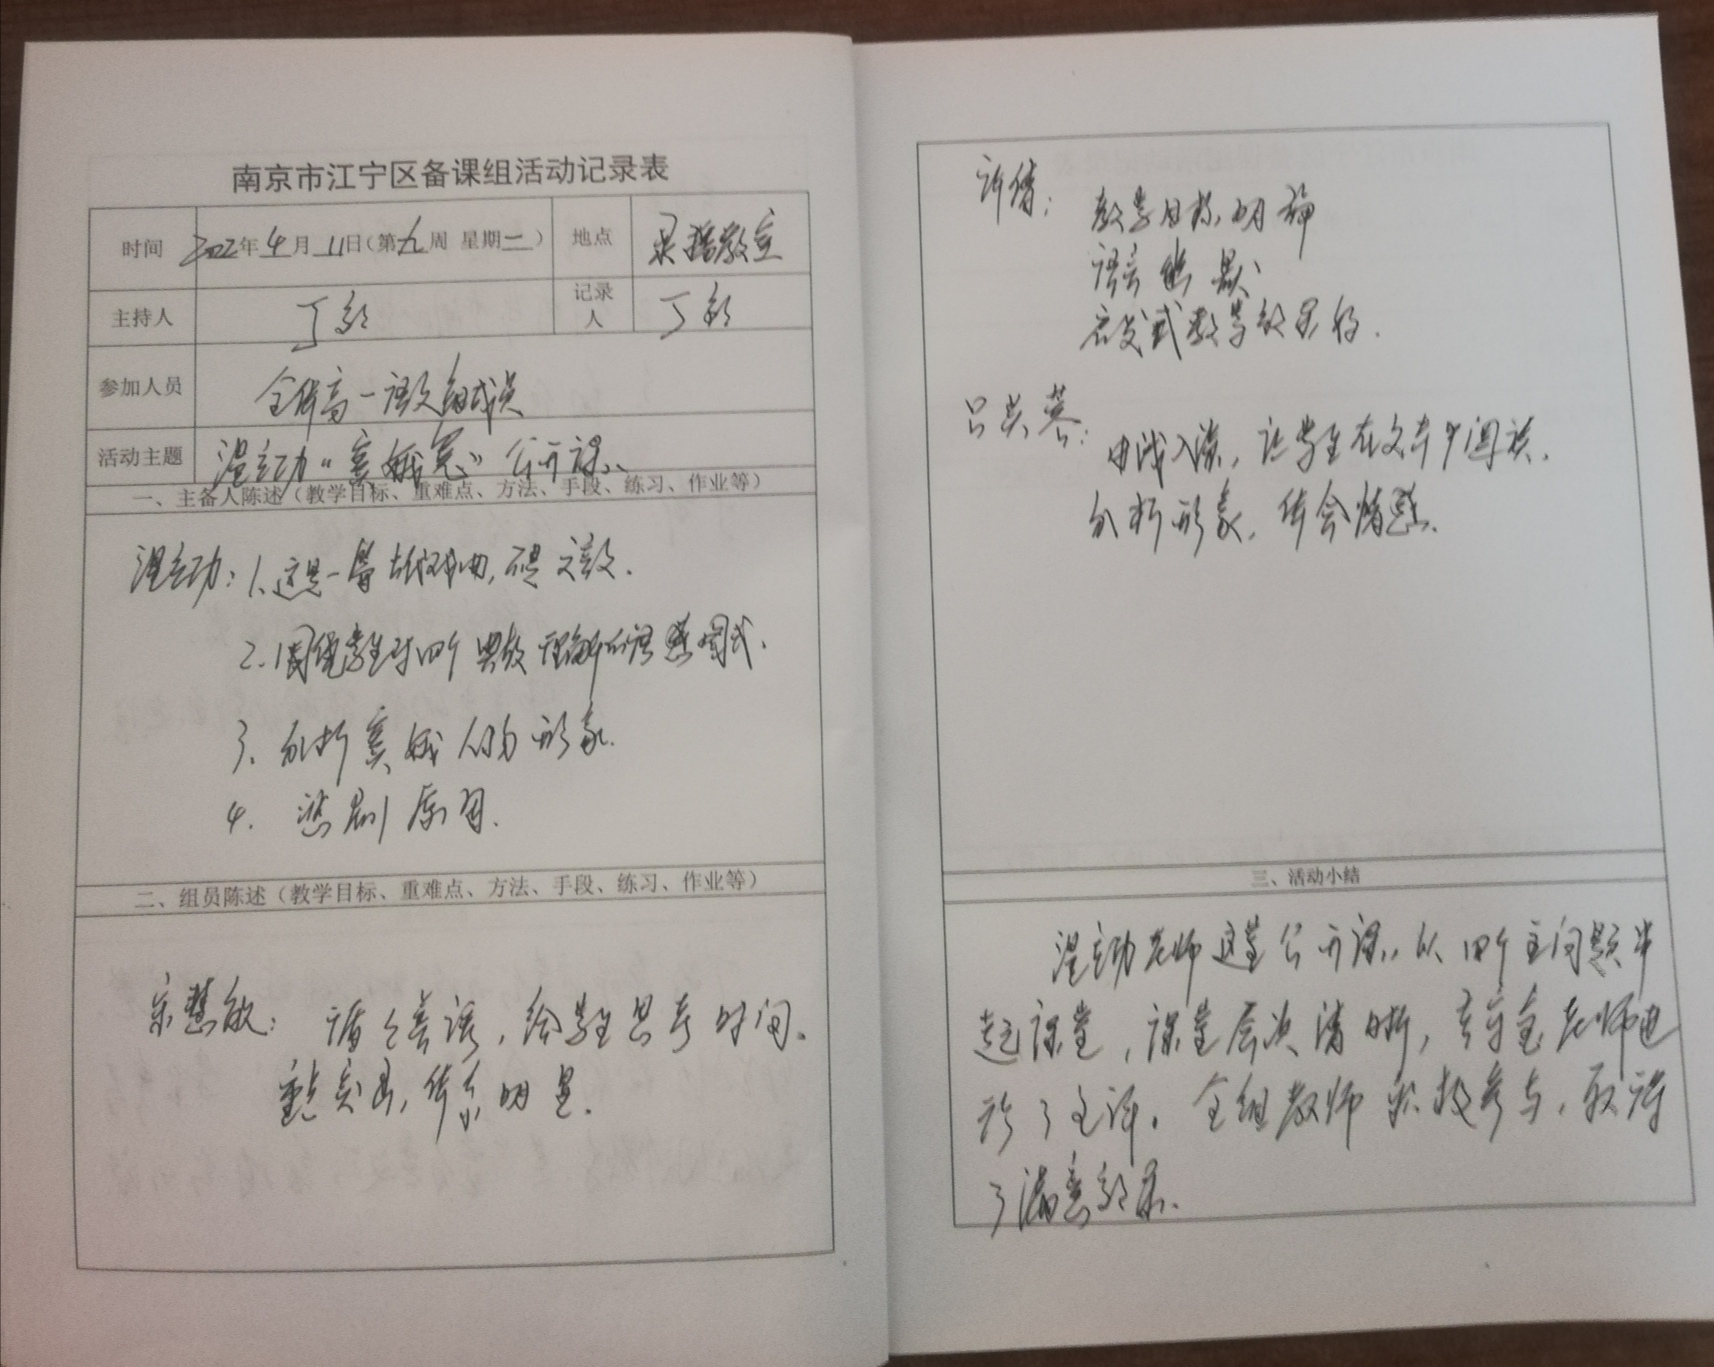 南京市江宁区备课组活动记录表
时间 2022年4月11日（第九周 星期一） 地点 录播教室
主持人 丁 记录人 丁
参加人员 全体高一语文组成员
活动主题 温立功《窦娥冤》公开课
一、主备人陈述（教学目标、重难点、方法、手段、练习、作业等）
温立功：1.这是一篇古代戏曲，
2.围绕学生对四个典故理解
3.分析窦娥人物形象.
4.悲剧原因.
二、组员陈述（教学目标、重难点、方法、手段、练习、作业等）
宗慧敏：循循善诱，给学生思考时间。
重点突出，体系明显.
许倩：教学目标明确
语言幽默
启发式教学效果好.
吕芙蓉：
由浅入深，让学生在文本中阅读.
分析形象，体会情感.
三、活动小结
温立功老师这堂公开课从四个主问题串
起课堂，课堂层次清晰，老师进
行了主评。全组教师积极参与，取得
了满意效果.